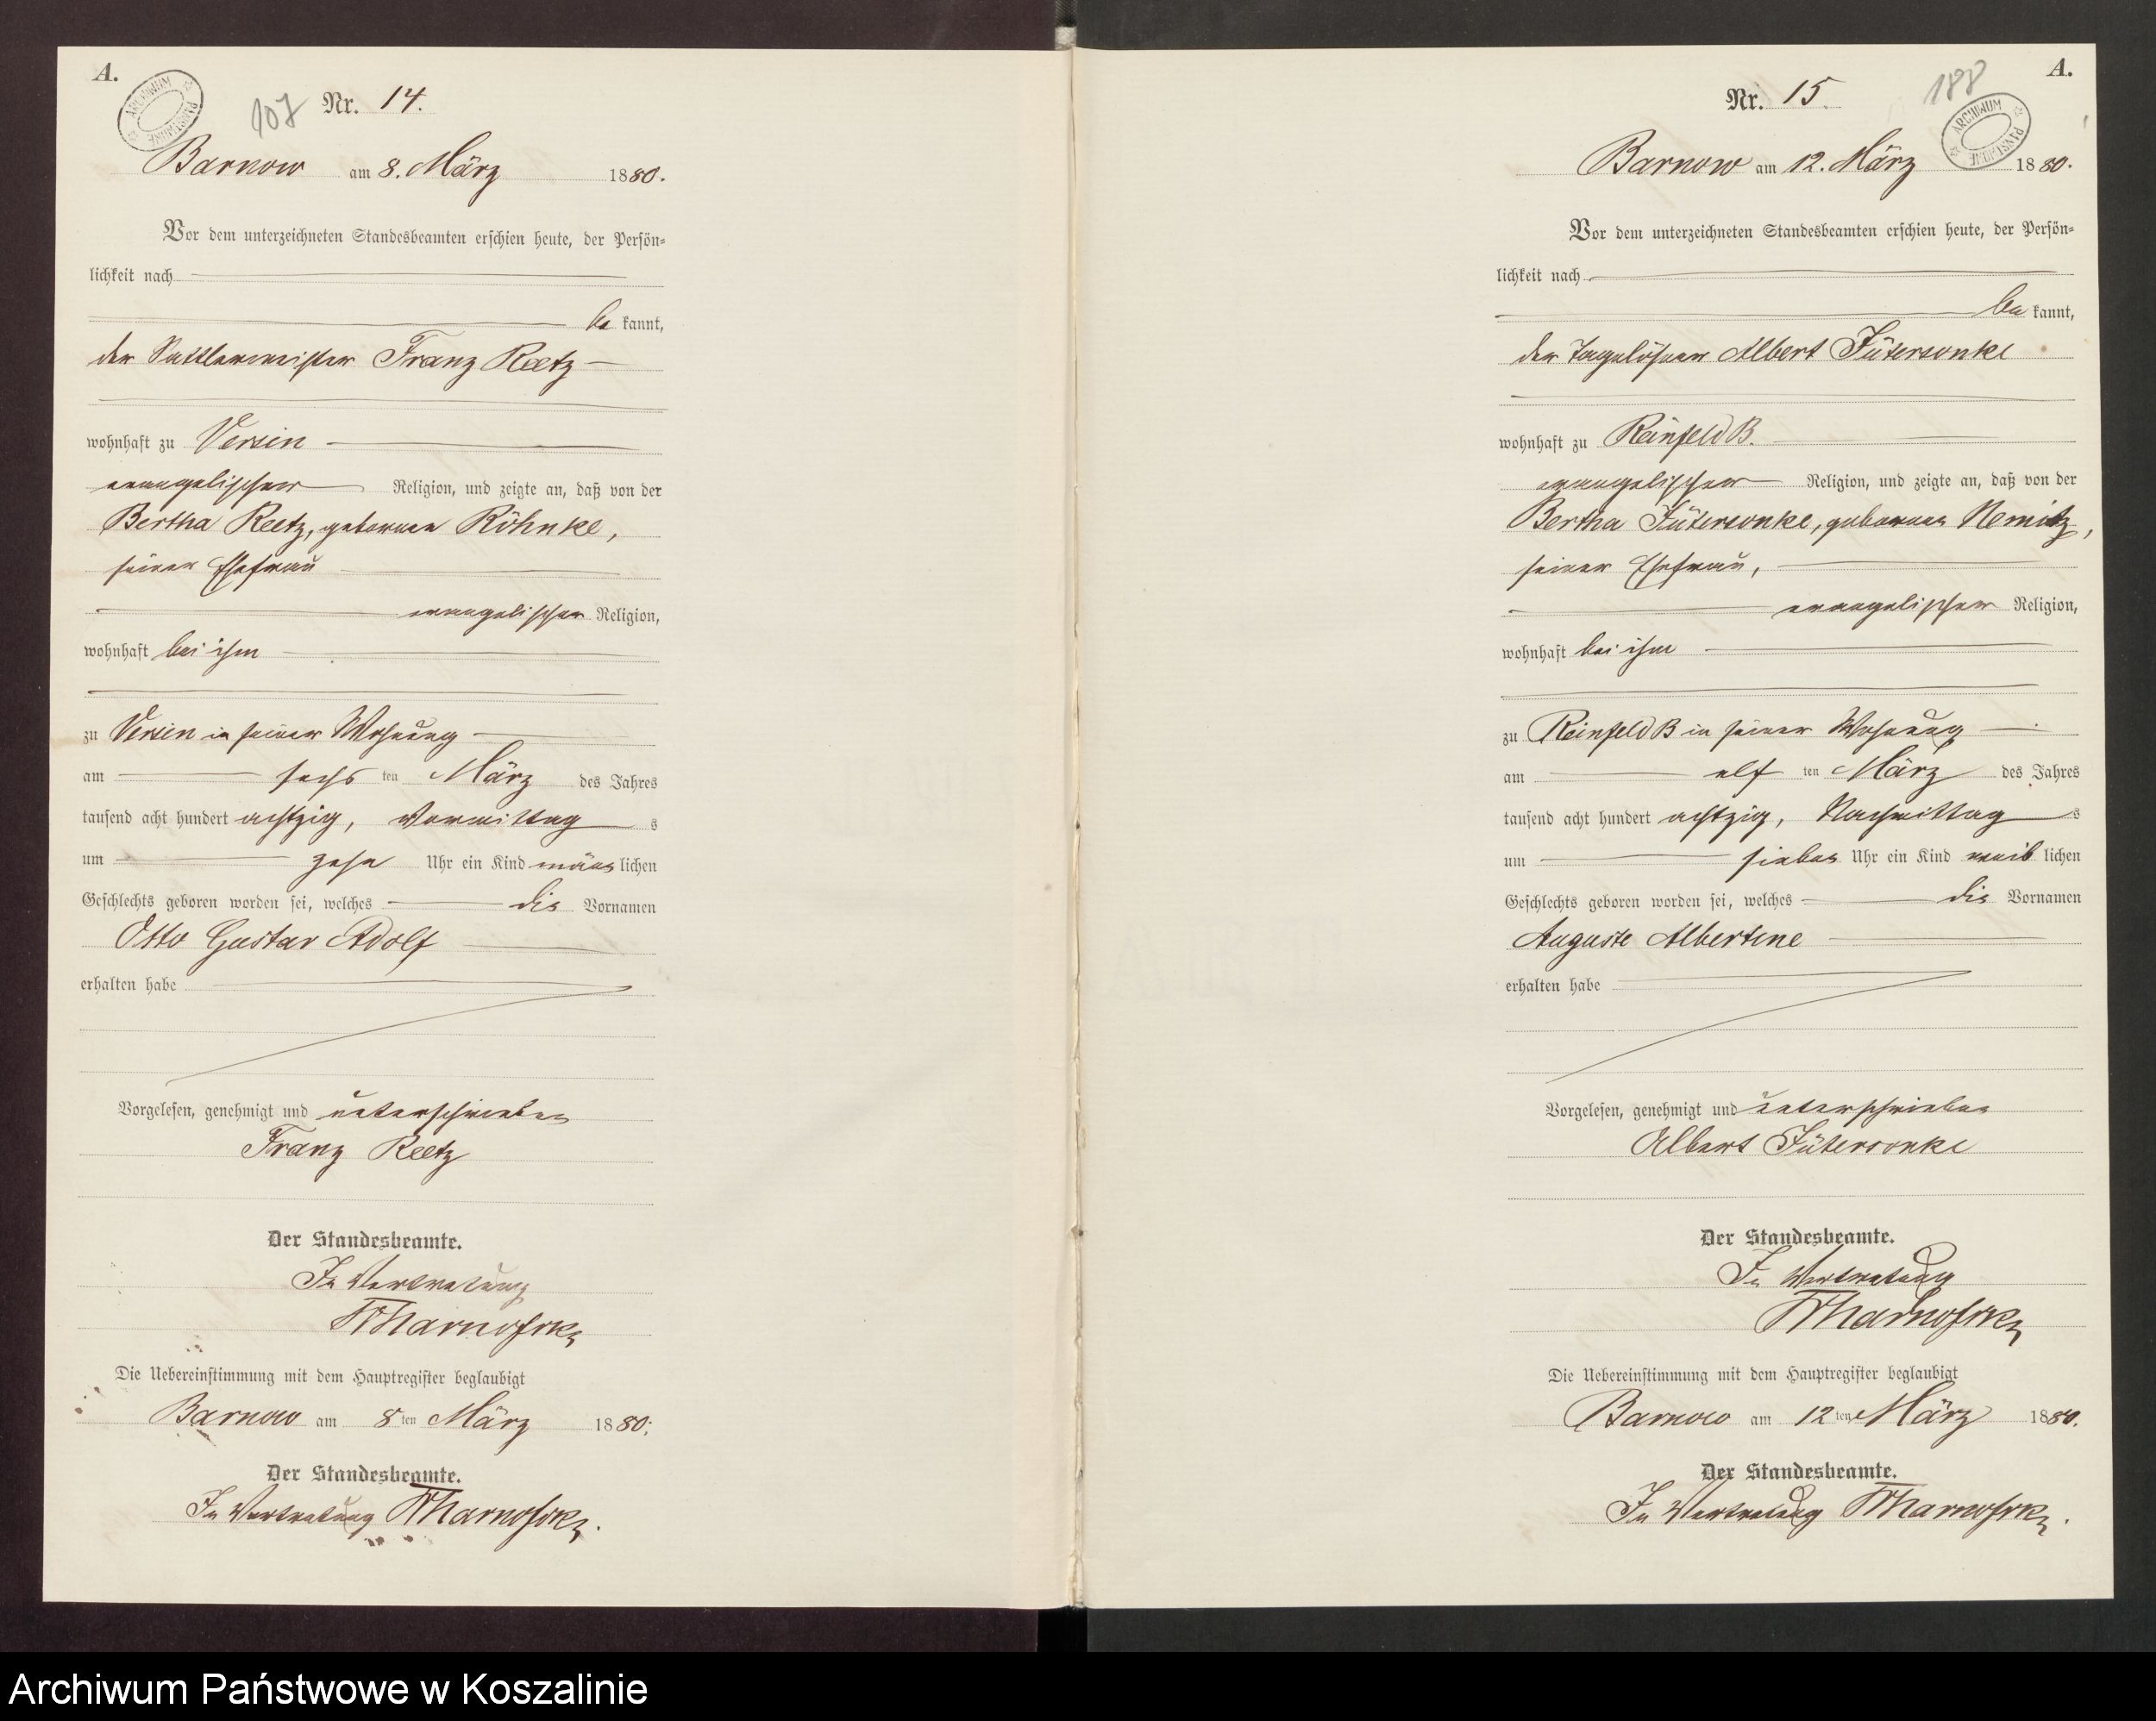 A.
ARCHIWUM PAŃSTWOWE
107 Nr. 14.
Barnow am 8. März 1880.
Vor dem unterzeichneten Standesbeamten erschien heute, der Persön-
lichkeit nach
be kannt,
der Sattlermeister Franz Reetz
wohnhaft zu Versin
evangelischer Religion, und zeigte an, daß von der
Bertha Reetz, geborenen Röhnke,
seiner Ehefrau
evangelischer Religion,
wohnhaft bei ihm
zu Versin in seiner Wohnung
am sechs ten März des Jahres
tausend acht hundert achtzig, Vormittag s
um zehn Uhr ein Kind männ lichen
Geschlechts geboren worden sei, welches die Vornamen
Otto Gustav Adolf
erhalten habe
Vorgelesen, genehmigt und unterschrieben
Franz Reetz
Der Standesbeamte.
In Vertretung
Die Uebereinstimmung mit dem Hauptregister beglaubigt
Barnow am 8 ten März 1880.
Der Standesbeamte.
In Vertretung
A.
188
ARCHIWUM PAŃSTWOWE
Nr. 15.
Barnow am 12. März 1880.
Vor dem unterzeichneten Standesbeamten erschien heute, der Persön-
lichkeit nach
be kannt,
der Tagelöhner Albert Fütersonke
wohnhaft zu Reinfeld B.
evangelischer Religion, und zeigte an, daß von der
Bertha Fütersonke, geborenen Nemitz,
seiner Ehefrau,
evangelischer Religion,
wohnhaft bei ihm
zu Reinfeld B in seiner Wohnung
am elf ten März des Jahres
tausend acht hundert achtzig, Nachmittag s
um sieben Uhr ein Kind weib lichen
Geschlechts geboren worden sei, welches die Vornamen
Auguste Albertine
erhalten habe
Vorgelesen, genehmigt und unterschrieben
Albert Fütersonke
Der Standesbeamte.
In Vertretung
Die Uebereinstimmung mit dem Hauptregister beglaubigt
Barnow am 12 ten März 1880.
Der Standesbeamte.
In Vertretung
Archiwum Państwowe w Koszalinie